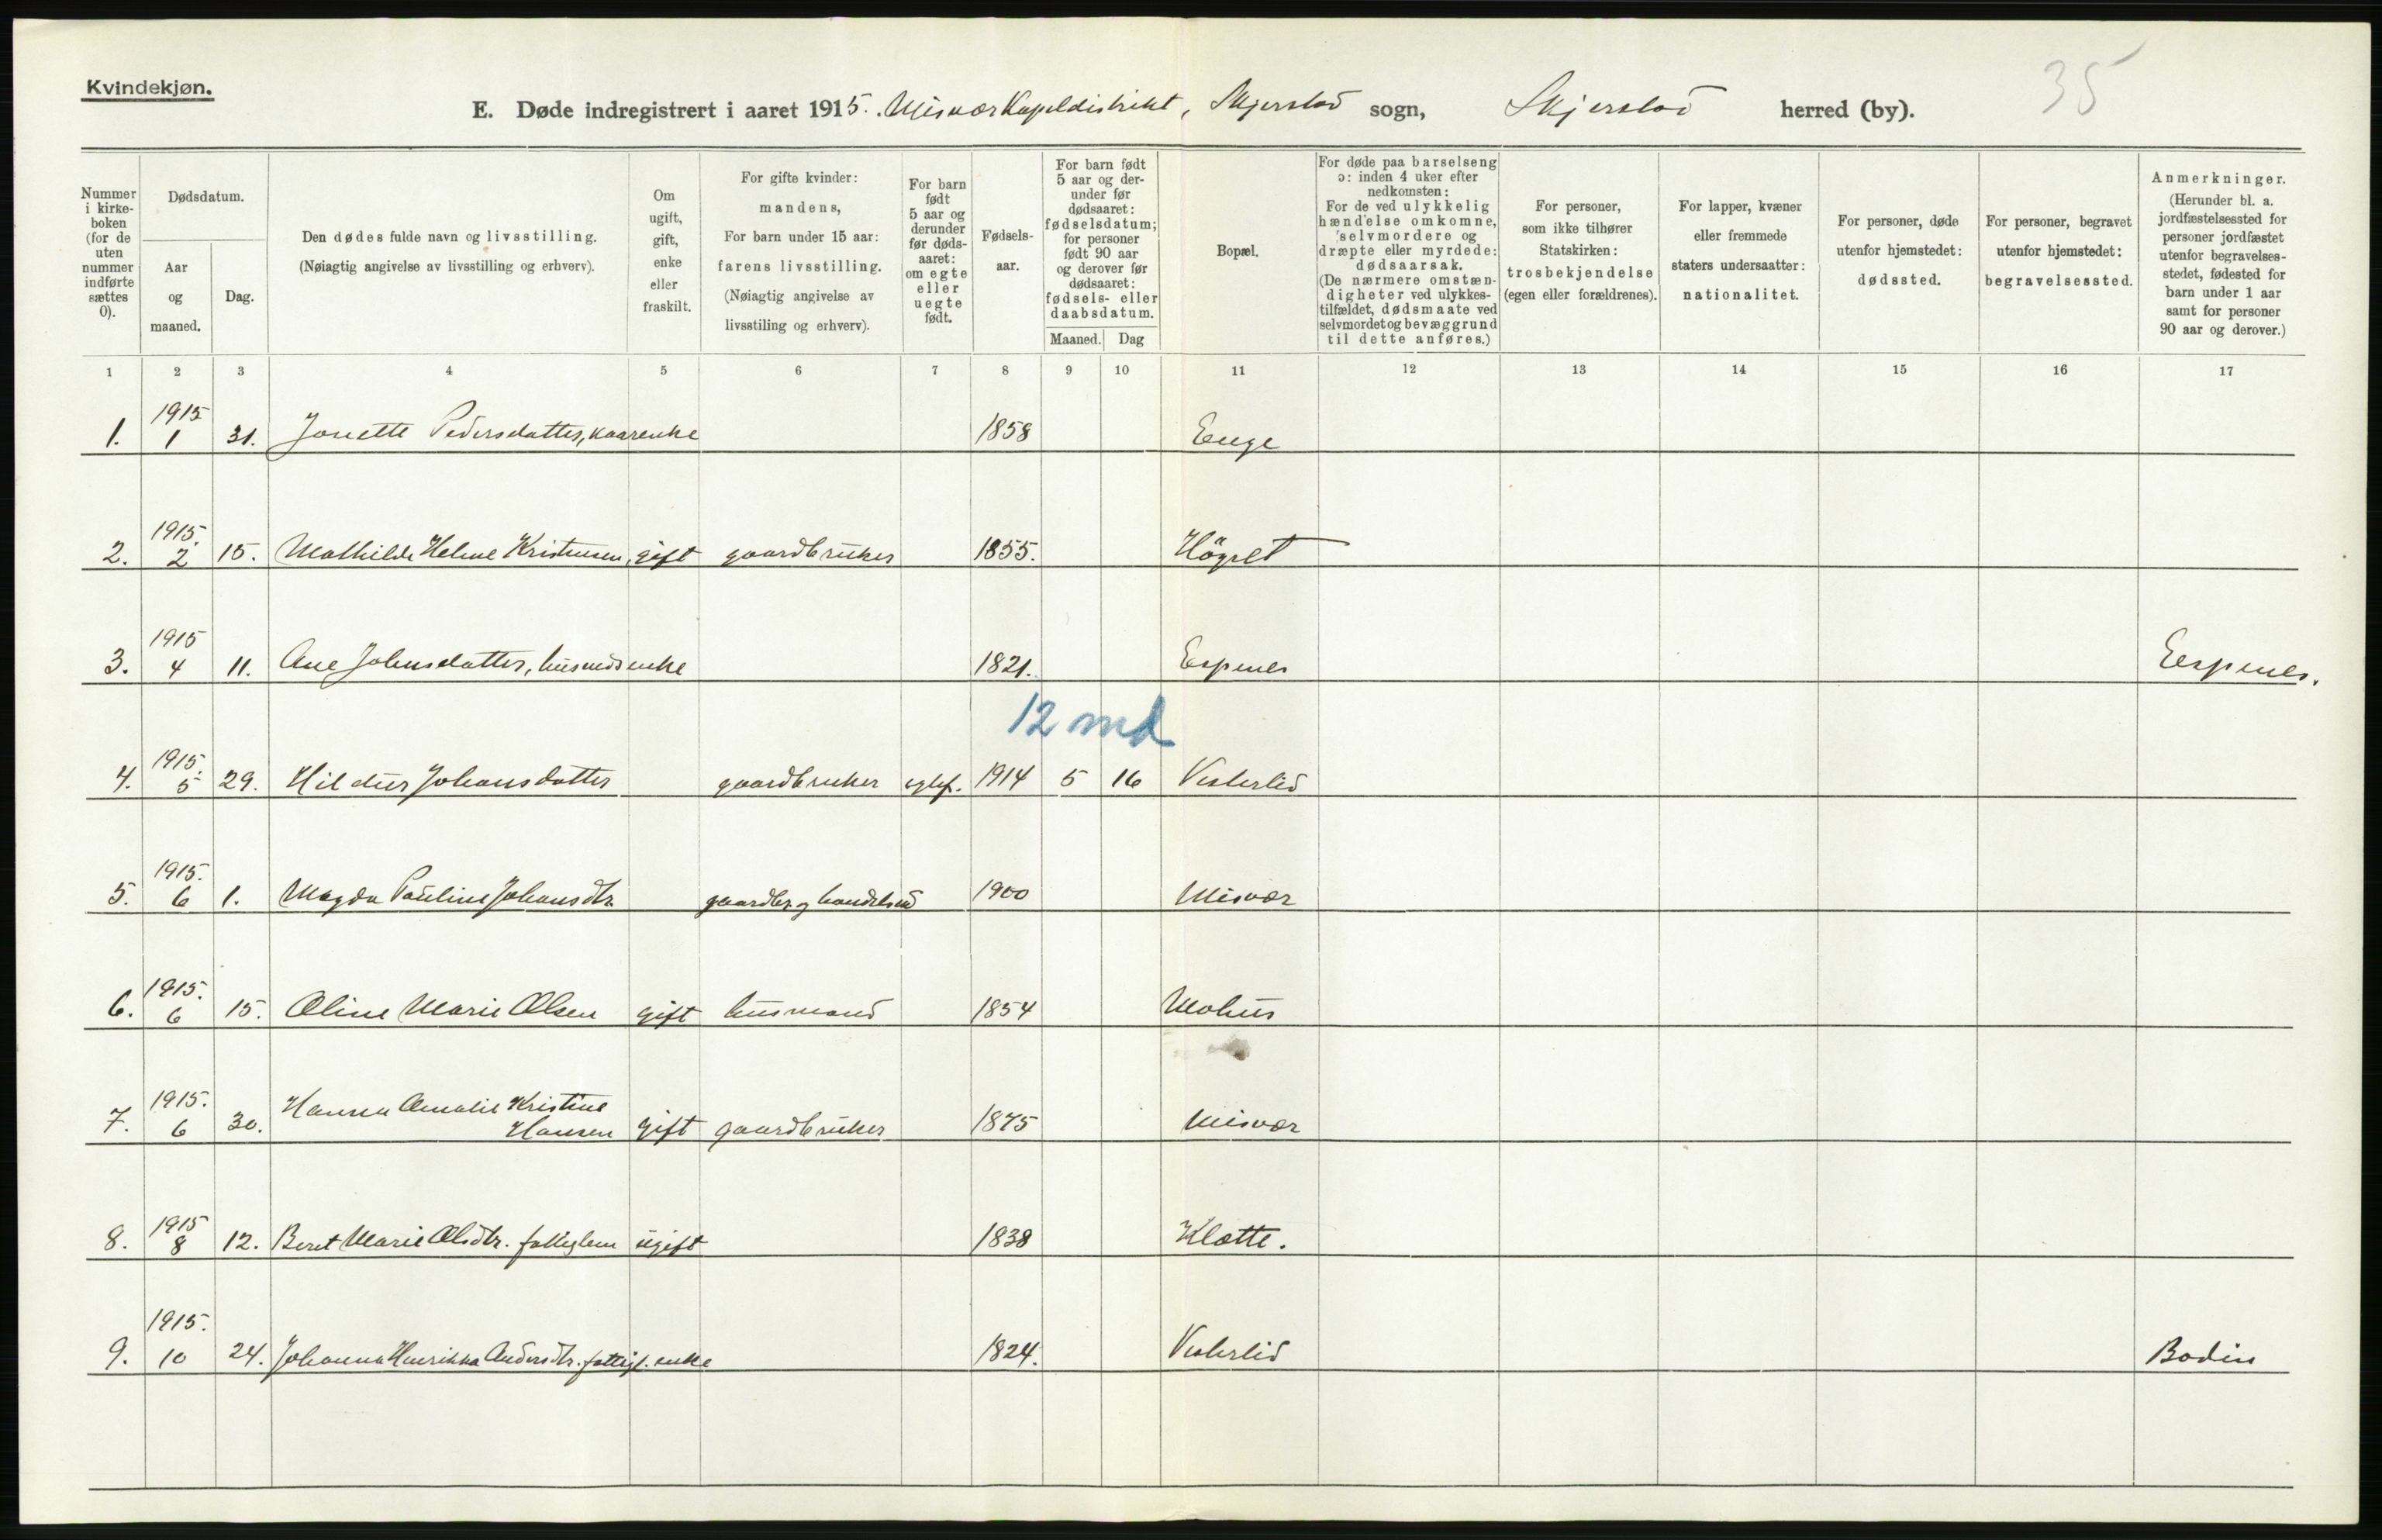 Kvindekjøn.
35
E. Døde indregistrert i aaret 1915. Misvær Kapeldistrikt, Skjerstad sogn, Skjerstad herred (by).
Nummer i kirkeboken (for de uten nummer indførte sættes 0).
Dødsdatum.
Aar og maaned.
Dag.
Den dødes fulde navn og livsstilling.
(Nøiagtig angivelse av livsstilling og erhverv).
Om ugift, gift, enke eller fraskilt.
For gifte kvinder: mandens,
For barn under 15 aar: farens livsstilling.
(Nøiagtig angivelse av livsstiling og erhverv).
For barn født 5 aar og derunder før dødsaaret: om egte eller uegte født.
Fødselsaar.
For barn født 5 aar og derunder før dødsaaret: fødselsdatum; for personer født 90 aar og derover før dødsaaret: fødsels- eller daabsdatum.
Maaned. Dag
Bopæl.
For døde paa barselseng ɔ: inden 4 uker efter nedkomsten:
For de ved ulykkelig hændelse omkomne, selvmordere og dræpte eller myrdede: dødsaarsak.
(De nærmere omstændigheter ved ulykkestilfældet, dødsmaate ved selvmordet og bevæggrund til dette anføres.)
For personer, som ikke tilhører Statskirken: trosbekjendelse (egen eller forældrenes).
For lapper, kvæner eller fremmede staters undersaatter: nationalitet.
For personer, døde utenfor hjemstedet: dødssted.
For personer, begravet utenfor hjemstedet: begravelsessted.
Anmerkninger.
(Herunder bl. a. jordfæstelsessted for personer jordfæstet utenfor begravelsesstedet, fødested for barn under 1 aar samt for personer 90 aar og derover.)
1 2 3 4 5 6 7 8 9 10 11 12 13 14 15 16 17
1. 1915 1 31. Jonette Pedersdatter, kaarenke 1858 Enge
2. 1915. 2 15. Mathilde Helene Kristensen, gift gaardbruker 1855.
3. 1915 4 11. Ane Johnsdatter, husmdsenke 1821. Espenes Espenes.
12 md
4. 1915. 5 29. Hildur Johansdatter gaardbruker egtef. 1914 5 16 Vesterlid
5. 1915. 6 1. Magda Pauline Johansdtr. gaardbr. og handelsmd 1900 Misvær
6. 1915. 6 15. Oline Marie Olsen gift husmand 1854 Mohus
7. 1915. 6 30. Hanna Amalie Kristine
Hansen gift gaardbruker 1875 Misvær
8. 1915 8 12. Beret Marie Olsdtr. fattiglem ugift 1838 Kløtte.
9. 1915. 10 24. Johanna Henrikka Andersdtr. fattigl. enke 1824. Vesterlid Bodin